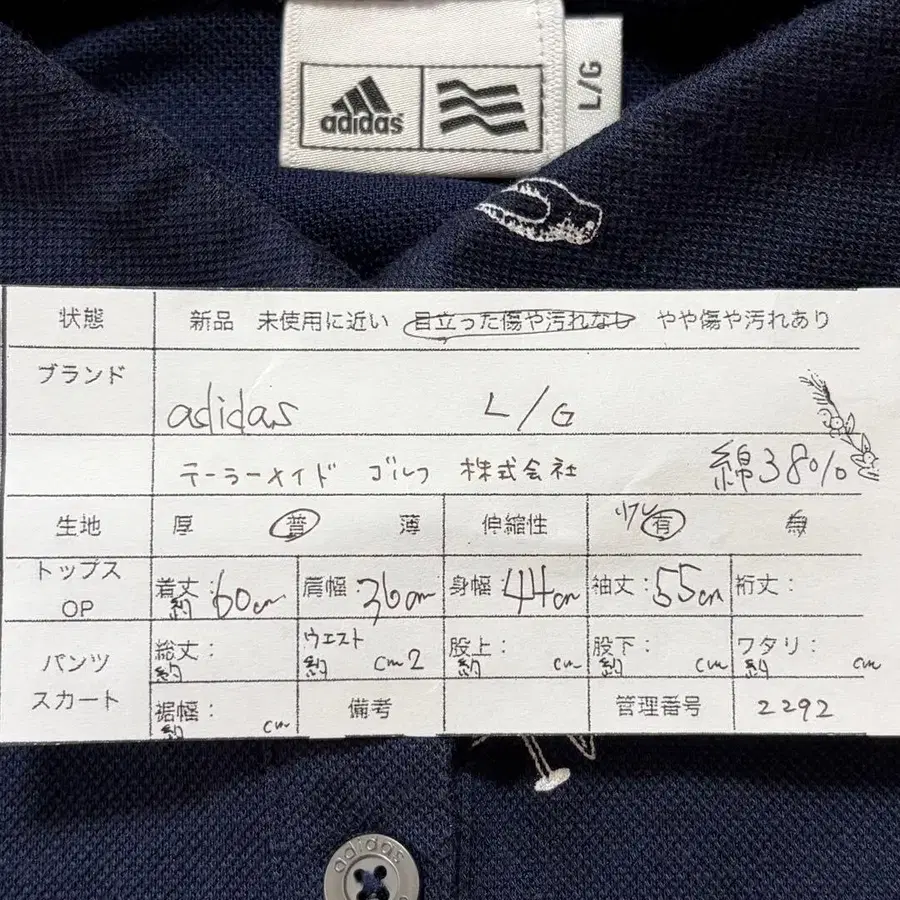 adidas
L/G
状態 新品 未使用に近い 目立った傷や汚れなし やや傷や汚れあり
ブランド adidas L/G
テーラーメイド ゴルフ 株式会社 綿38%
生地 厚 普 薄 伸縮性 少し 有 無
トップス OP 着丈:約60cm 肩幅:36cm 身幅:44cm 袖丈:55cm 裄丈:
パンツ スカート 総丈:約 ウエスト 約 cm2 股上:約 cm 股下:約 cm ワタリ:約 cm
裾幅:約 cm 備考 管理番号 2292
adidas